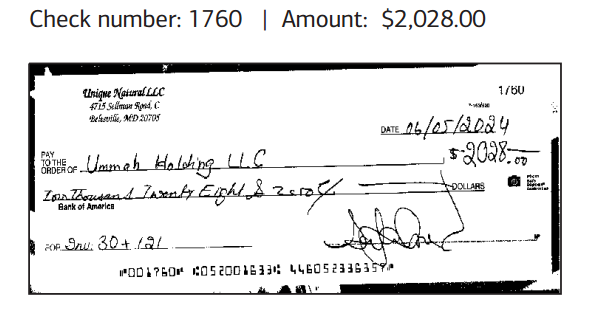 Check number: 1760 | Amount: $2,028.00
Unique Natural LLC
4715 Sellman Road, C
Beltsville, MD 20705
1760
DATE 06/05/2024
PAY TO THE ORDER OF Ummah Holding LLC $ 2028.00
Two Thousand Twenty Eight & zero DOLLARS
Bank of America
FOR Inv: 30+121
⑈001760⑈ ⑆052001633⑆ 446052336359⑈